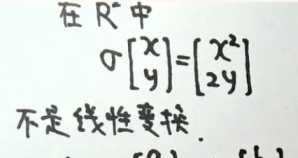 在 R² 中
σ[x y] = [x² 2y]
不是线性变换.